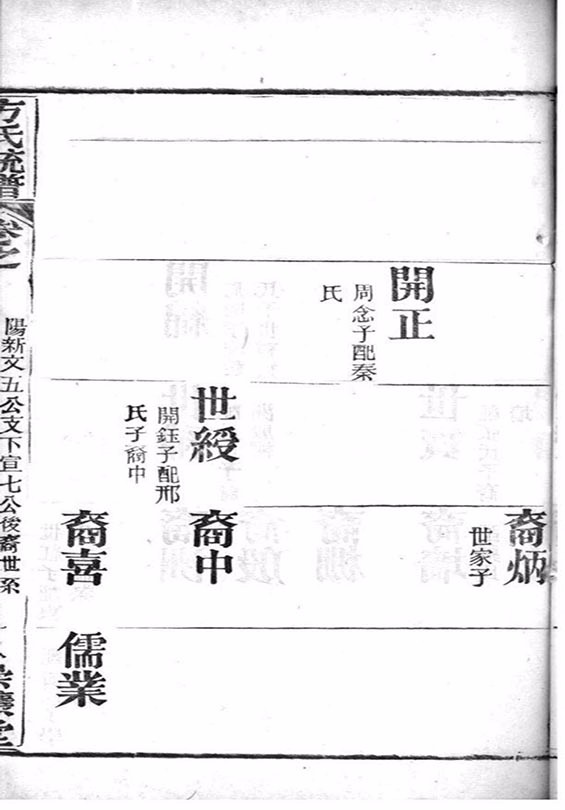 裔炳
世家子
開正
周念子配秦
氏
世綬
開鈺子配邢
氏子裔中
裔中
裔喜
儒業
方氏統譜
卷之
陽新文五公支下宣七公後裔世系